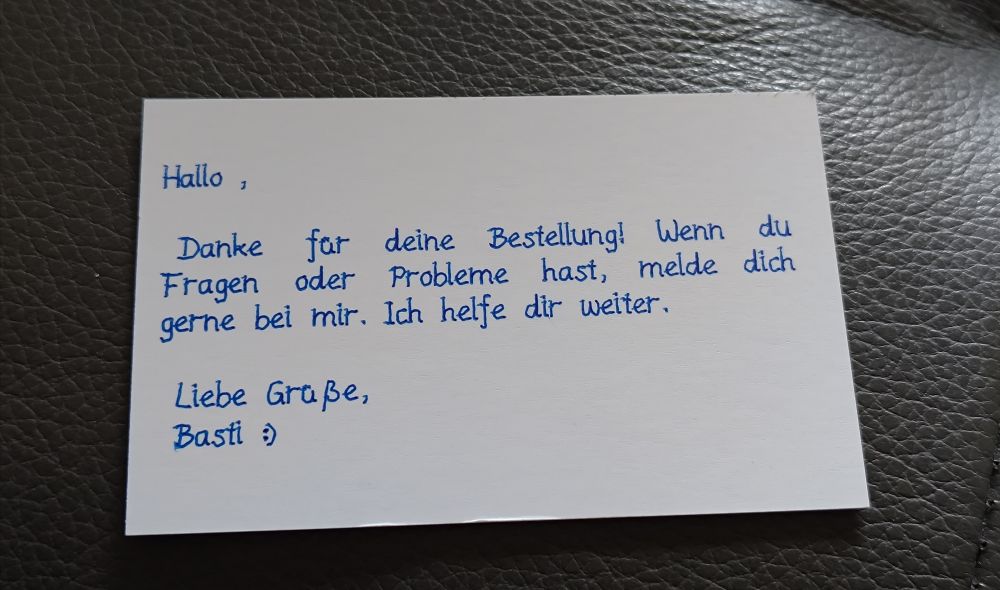 Hallo ,
Danke far deine Bestellung! Wenn du
Fragen oder Probleme hast, melde dich
gerne bei mir. Ich helfe dir weiter.
Liebe Graße,
Basti :)